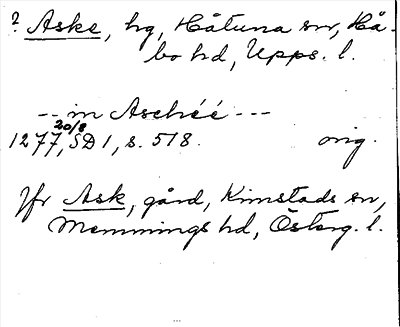 ? Aske, hg, Håtuna sn, Hå-
bo hd, Upps. l.
--- in Aschéé ---
20/8
1277, SD 1, s. 518. orig.
Jfr Ask, gård, Kimstads sn,
Memmings hd, Österg. l.